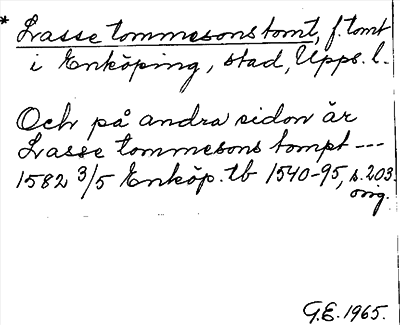 * Lasse tommesons tomt, f. tomt
i Enköping, stad, Upps. l.
Och på andra sidon är
Lasse tommesons tompt ---
1582 3/5 Enköp. tb 1540-95, s. 203.
orig.
G.E. 1965.